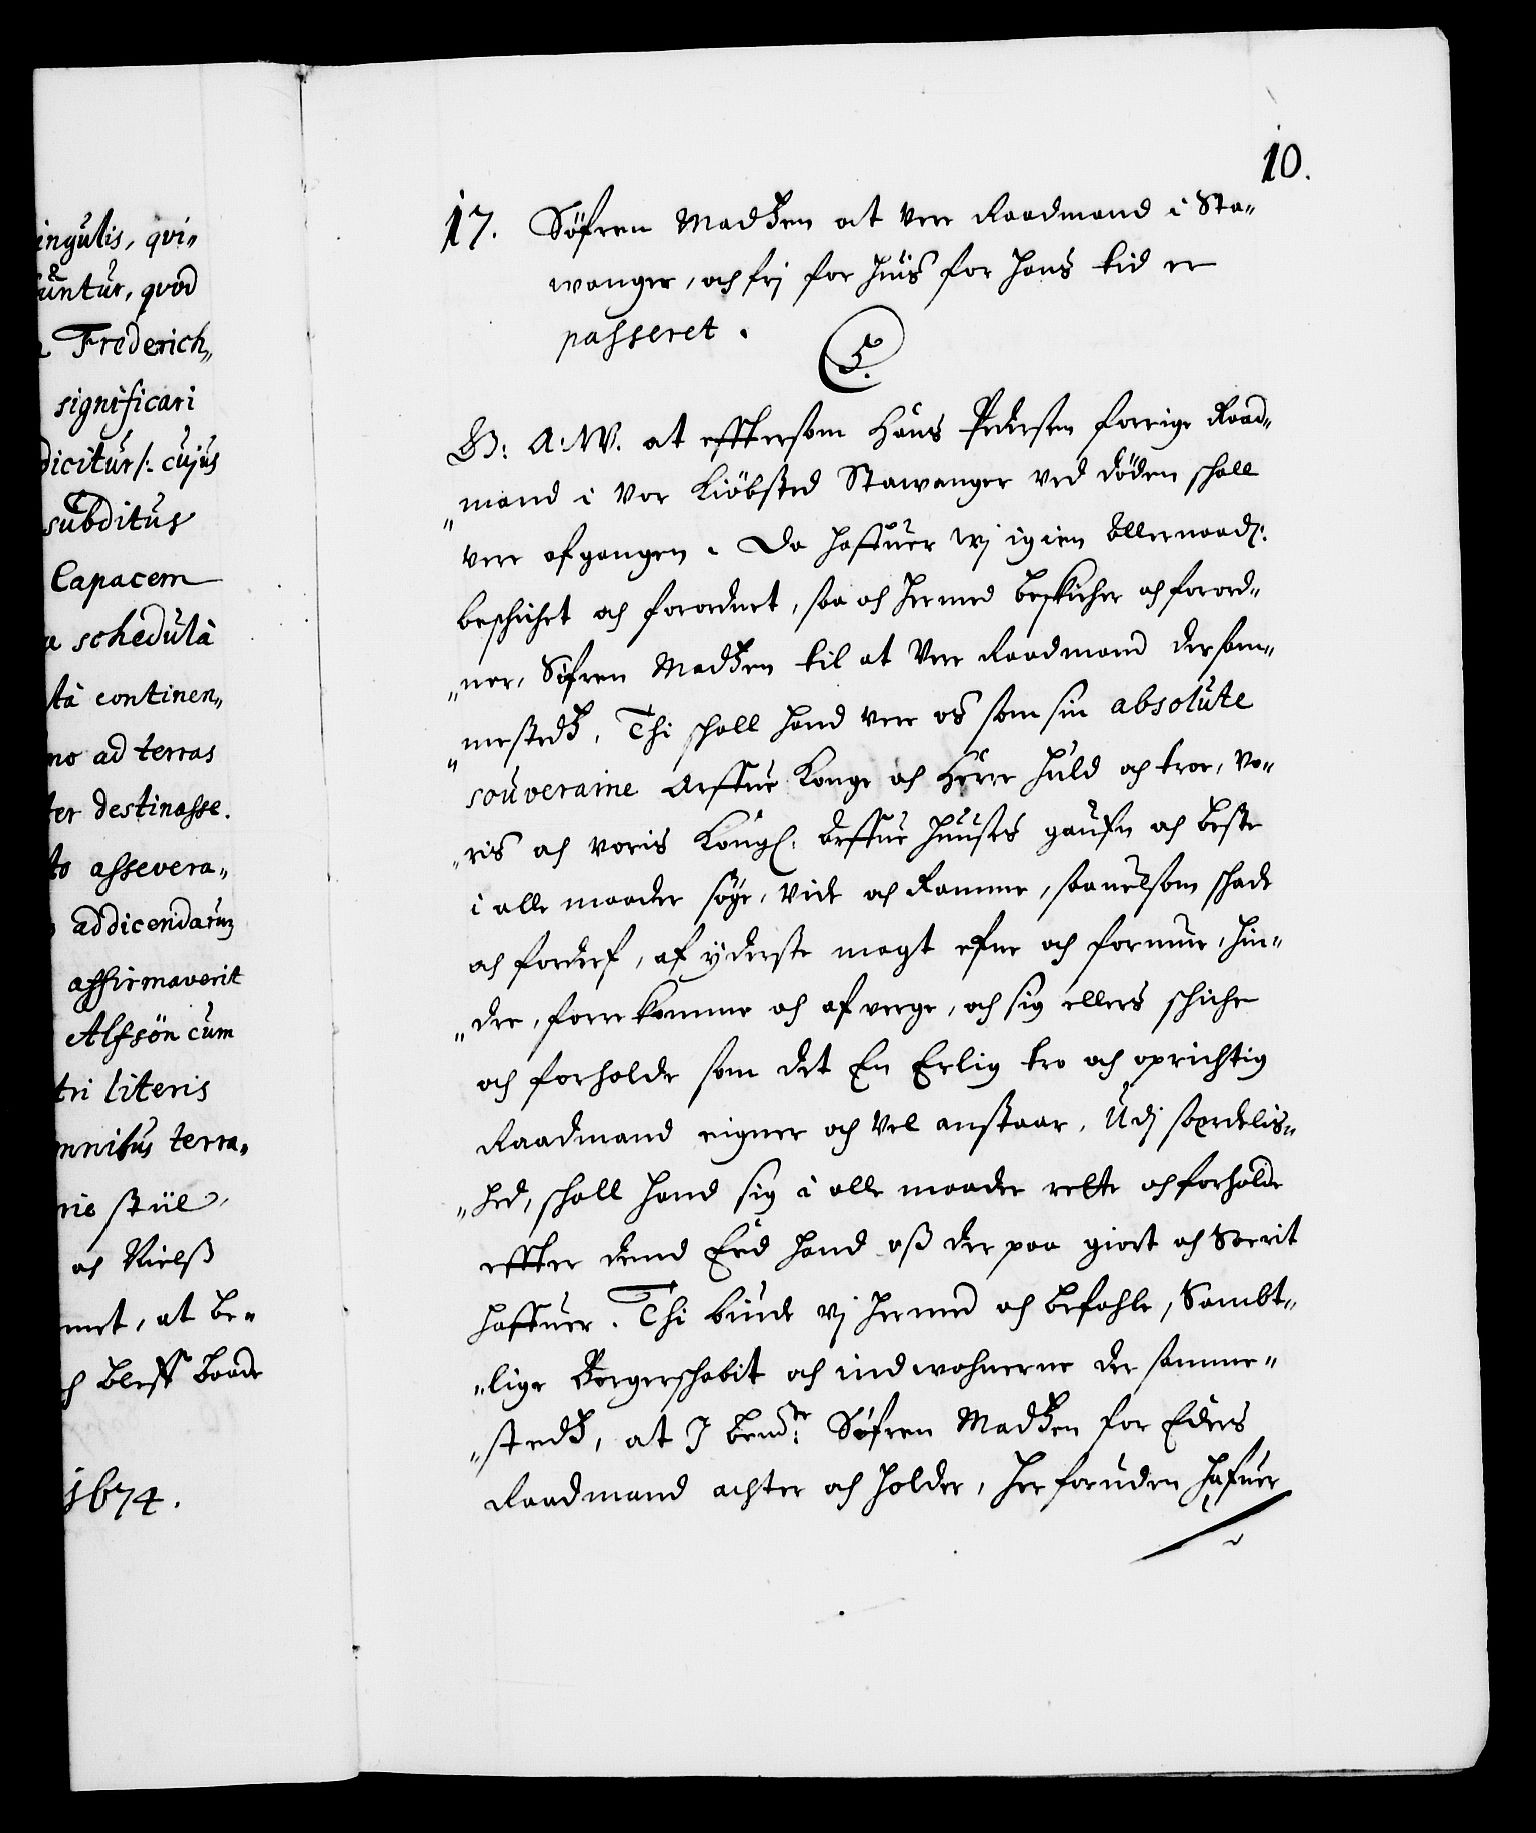 ingulis, qvi„
untur, qvod
Frederich„
significari
dicitur/: cujus
subditus
Capacem
schedulà
tà continen„
no ad terras
ter destinasse.
to assevera„
addicendarum
affirmaverit
Alfsön cum
tri literis
mnibus terra„
rie stiil
och Nielß
met, at be„
ch bleff baade
1674.
10.
17. Söfren Madtzen at vere Raadmand i Sta„
wanger, och frj for huis for hans tid er
passeret.
5.
G: A: W. at effttersom Hans Pedersen forrige Raad„
„mand i vor Kiöbsted Stawanger ved döden schall
vere afgangen. Da haffuer wj igien allernaad:
beschichet och forordnet, saa och hermed beskicher och forord„
„ner, Söfren Madtzen til at vere Raadmand dersam„
„mestedtz. Thi schall hand vere os som sin absolute
souveraine Arffue Konge och Herre huld och troe, vo„
„ris och voris Kongl: Arffue Huuses gaufn och beste
i alle maader söge, vide och Ramme, saauelsom schade
och forderf, af yderste magt efne och formue, hin„
„dre, forrekomme och afverge, och sig ellers schiche
och forholde som det En Erlig tro och oprichtig
Raadmand eigner och vel anstaar, Udj særdelis„
„hed, schall hand sig i alle maader rette och forholde
effter dend Eed hand oß der paa giort och Soerit
haffuer. Thi biude vj hermed och befahle, Sambt„
„lige Borgerschabit och indwohnerne der samme„
„stedtz, at I bemte: Söfren Madtzen for Eders
Raadmand achter och holder, her foruden hafuer